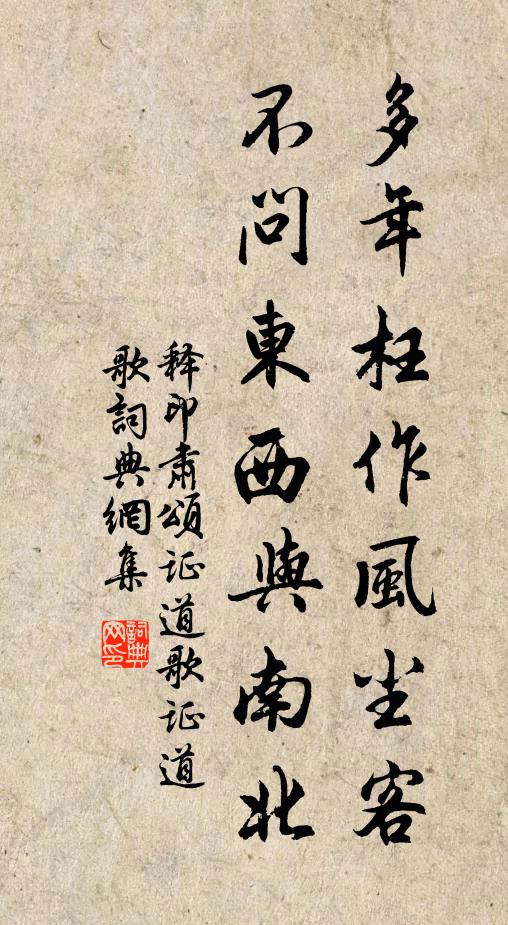 多年枉作風尘客
不問東西與南北
释印肃頌证道歌证道
歌詞典網集
詞典网印